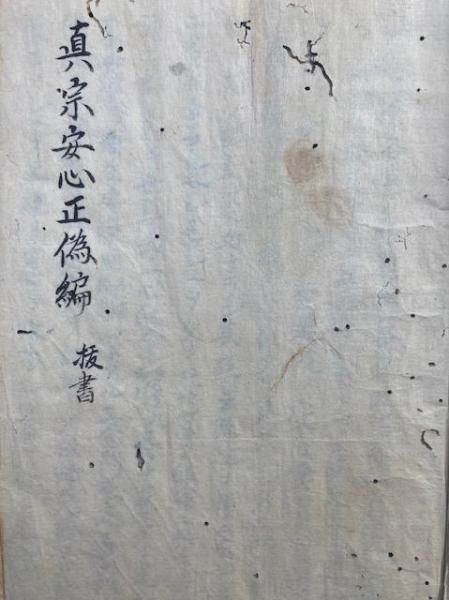 真宗安心正偽編
抜書